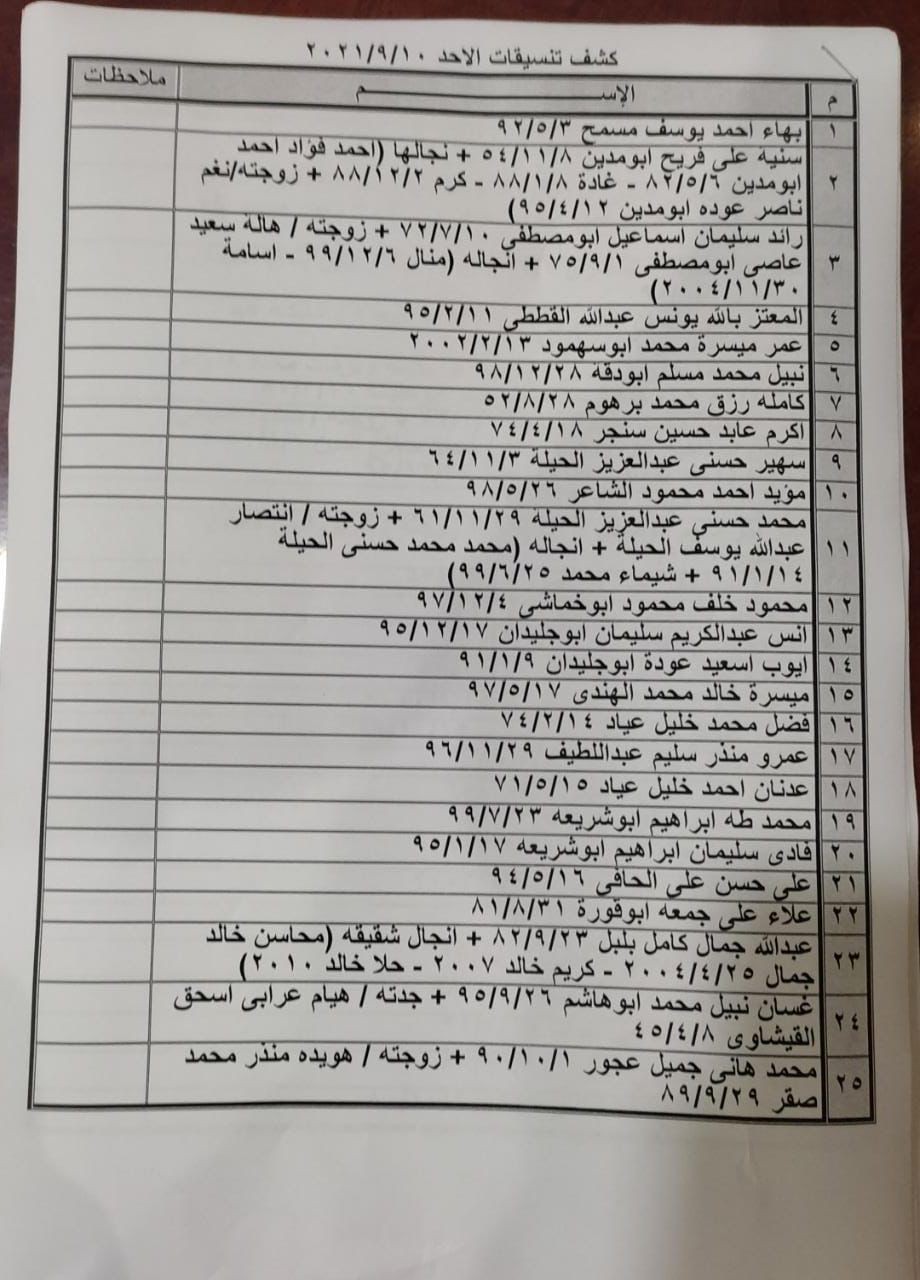 كشف تنسيقات الاحد ٢٠٢١/٩/١٠
م الإســـــــم ملاحظات
١ بهاء احمد يوسف مسمح ٩٢/٥/٣
سنية على فريح ابومدين ٥٤/١١/٨ + نجالها (احمد فؤاد احمد
٢ ابومدين ٨٢/٥/٦ - غادة ٨٨/١/٨ - كرم ٨٨/١٢/٢ + زوجته/نغم
ناصر عوده ابومدين ٩٥/٤/١٢)
رائد سليمان اسماعيل ابومصطفى ٧٢/٧/١٠ + زوجته / هالة سعيد
٣ عاصى ابومصطفى ٧٥/٩/١ + انجاله (منال ٩٩/١٢/٦ - اسامة
٢٠٠٤/١١/٣٠)
٤ المعتز بالله يونس عبدالله القططى ٩٥/٢/١١
٥ عمر ميسرة محمد ابوسهمود ٢٠٠٢/٢/١٣
٦ نبيل محمد مسلم ابودقة ٩٨/١٢/٢٨
٧ كامله رزق محمد برهوم ٥٢/٨/٢٨
٨ اكرم عابد حسين سنجر ٧٤/٤/١٨
٩ سهير حسنى عبدالعزيز الحيلة ٦٤/١١/٣
١٠ مؤيد احمد محمود الشاعر ٩٨/٥/٢٦
محمد حسنى عبدالعزيز الحيلة ٦١/١١/٢٩ + زوجته / انتصار
١١ عبدالله يوسف الحيلة + انجاله (محمد محمد حسنى الحيلة
٩١/١/١٤ + شيماء محمد ٩٩/٦/٢٥)
١٢ محمود خلف محمود ابوخماشى ٩٧/١٢/٤
١٣ انس عبدالكريم سليمان ابوجليدان ٩٥/١٢/١٧
١٤ ايوب اسعيد عودة ابوجليدان ٩١/١/٩
١٥ ميسرة خالد محمد الهندى ٩٧/٥/١٧
١٦ فضل محمد خليل عياد ٧٤/٢/١٤
١٧ عمرو منذر سليم عبداللطيف ٩٦/١١/٢٩
١٨ عدنان احمد خليل عياد ٧١/٥/١٥
١٩ محمد طه ابراهيم ابوشريعه ٩٩/٧/٢٣
٢٠ فادى سليمان ابراهيم ابوشريعه ٩٥/١/١٧
٢١ على حسن على الحافى ٩٤/٥/١٦
٢٢ علاء على جمعه ابوقورة ٨١/٨/٣١
٢٣ عبدالله جمال كامل بلبل ٨٢/٩/٢٣ + انجال شقيقه (محاسن خالد
جمال ٢٠٠٤/٤/٢٥ - كريم خالد ٢٠٠٧ - حلا خالد ٢٠١٠)
٢٤ غسان نبيل محمد ابوهاشم ٩٥/٩/٢٦ + جدته / هيام عرابى اسحق
القيشاوى ٤٥/٤/٨
٢٥ محمد هانى جميل عجور ٩٠/١٠/١ + زوجته / هويده منذر محمد
صقر ٨٩/٩/٢٩